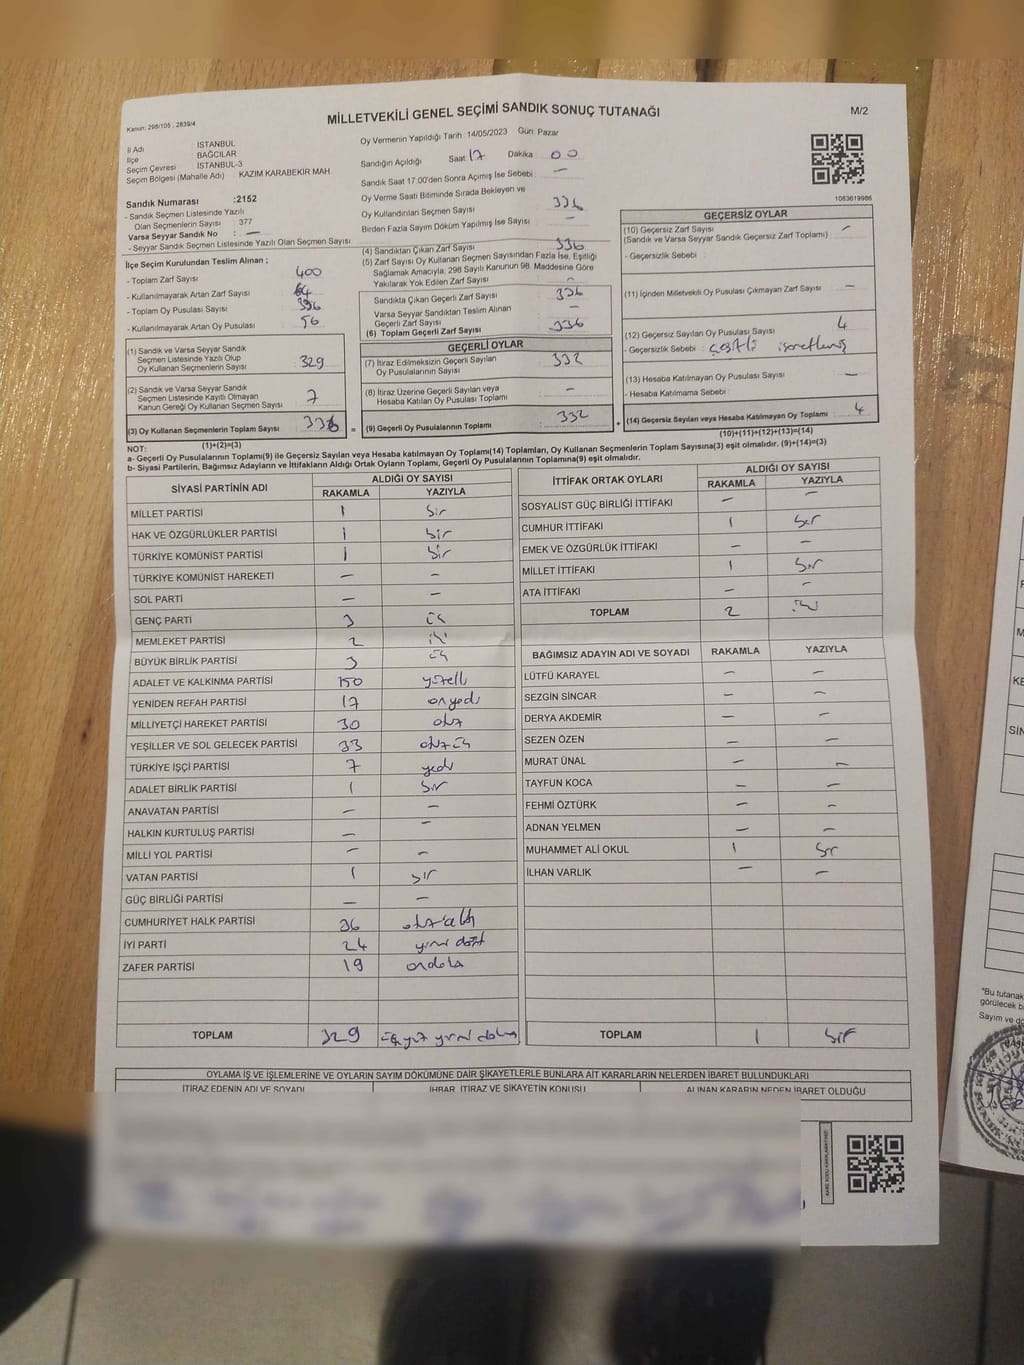 Kanun: 298/105 , 2839/4
MİLLETVEKİLİ GENEL SEÇİMİ SANDIK SONUÇ TUTANAĞI
M/2
İl Adı İSTANBUL
İlçe BAĞCILAR
Seçim Çevresi İSTANBUL-3
Seçim Bölgesi (Mahalle Adı) : KAZIM KARABEKİR MAH.
Sandık Numarası :2152
- Sandık Seçmen Listesinde Yazılı
Olan Seçmenlerin Sayısı : 377
Varsa Seyyar Sandık No : —
- Seyyar Sandık Seçmen Listesinde Yazılı Olan Seçmen Sayısı:
Oy Vermenin Yapıldığı Tarih :14/05/2023 Gün: Pazar
Sandığın Açıldığı Saat 17 Dakika 00
Sandık Saat 17:00'den Sonra Açılmış İse Sebebi : —
Oy Verme Saati Bitiminde Sırada Bekleyen ve
Oy Kullandırılan Seçmen Sayısı 336
Birden Fazla Sayım Döküm Yapılmış İse Sayısı —
1083619986
İlçe Seçim Kurulundan Teslim Alınan ;
- Toplam Zarf Sayısı 400
- Kullanılmayarak Artan Zarf Sayısı 64
- Toplam Oy Pusulası Sayısı
- Kullanılmayarak Artan Oy Pusulası 56
(1) Sandık ve Varsa Seyyar Sandık
Seçmen Listesinde Yazılı Olup
Oy Kullanan Seçmenlerin Sayısı 329
(2) Sandık ve Varsa Seyyar Sandık
Seçmen Listesinde Kayıtlı Olmayan
Kanun Gereği Oy Kullanan Seçmen Sayısı 7
(3) Oy Kullanan Seçmenlerin Toplam Sayısı 336 =
(1)+(2)=(3)
(4) Sandıktan Çıkan Zarf Sayısı 336
(5) Zarf Sayısı Oy Kullanan Seçmen Sayısından Fazla İse, Eşitliği
Sağlamak Amacıyla, 298 Sayılı Kanunun 98. Maddesine Göre
Yakılarak Yok Edilen Zarf Sayısı —
Sandıkta Çıkan Geçerli Zarf Sayısı 336
Varsa Seyyar Sandıktan Teslim Alınan
Geçerli Zarf Sayısı
(6) Toplam Geçerli Zarf Sayısı 336
GEÇERLİ OYLAR
(7) İtiraz Edilmeksizin Geçerli Sayılan
Oy Pusulalarının Sayısı 332
(8) İtiraz Üzerine Geçerli Sayılan veya
Hesaba Katılan Oy Pusulası Toplamı —
(9) Geçerli Oy Pusulalarının Toplamı 332 +
GEÇERSİZ OYLAR
(10) Geçersiz Zarf Sayısı —
(Sandık ve Varsa Seyyar Sandık Geçersiz Zarf Toplamı)
- Geçersizlik Sebebi :
(11) İçinden Milletvekili Oy Pusulası Çıkmayan Zarf Sayısı —
(12) Geçersiz Sayılan Oy Pusulası Sayısı 4
- Geçersizlik Sebebi : çeşitli işaretleniş
(13) Hesaba Katılmayan Oy Pusulası Sayısı —
- Hesaba Katılmama Sebebi :
(14) Geçersiz Sayılan veya Hesaba Katılmayan Oy Toplamı 4
(10)+(11)+(12)+(13)=(14)
NOT:
a- Geçerli Oy Pusulalarının Toplamı(9) ile Geçersiz Sayılan veya Hesaba katılmayan Oy Toplamı(14) Toplamları, Oy Kullanan Seçmenlerin Toplam Sayısına(3) eşit olmalıdır. (9)+(14)=(3)
b- Siyasi Partilerin, Bağımsız Adayların ve İttifakların Aldığı Ortak Oyların Toplamı, Geçerli Oy Pusulalarının Toplamına(9) eşit olmalıdır.
SİYASİ PARTİNİN ADI ALDIĞI OY SAYISI
RAKAMLA YAZIYLA
MİLLET PARTİSİ 1 bir
HAK VE ÖZGÜRLÜKLER PARTİSİ 1 bir
TÜRKİYE KOMÜNİST PARTİSİ 1 bir
TÜRKİYE KOMÜNİST HAREKETİ — —
SOL PARTİ — —
GENÇ PARTİ 3 üç
MEMLEKET PARTİSİ 2 iki
BÜYÜK BİRLİK PARTİSİ 3 üç
ADALET VE KALKINMA PARTİSİ 150 yüzelli
YENİDEN REFAH PARTİSİ 17 onyedi
MİLLİYETÇİ HAREKET PARTİSİ 30 otuz
YEŞİLLER VE SOL GELECEK PARTİSİ 33 otuzüç
TÜRKİYE İŞÇİ PARTİSİ 7 yedi
ADALET BİRLİK PARTİSİ 1 bir
ANAVATAN PARTİSİ — —
HALKIN KURTULUŞ PARTİSİ — —
MİLLİ YOL PARTİSİ — —
VATAN PARTİSİ 1 bir
GÜÇ BİRLİĞİ PARTİSİ — —
CUMHURİYET HALK PARTİSİ 36 otuzaltı
İYİ PARTİ 24 yirmi dört
ZAFER PARTİSİ 19 ondokuz
TOPLAM 329 üçyüz yirmi dokuz
İTTİFAK ORTAK OYLARI ALDIĞI OY SAYISI
RAKAMLA YAZIYLA
SOSYALİST GÜÇ BİRLİĞİ İTTİFAKI — —
CUMHUR İTTİFAKI 1 bir
EMEK VE ÖZGÜRLÜK İTTİFAKI — —
MİLLET İTTİFAKI 1 bir
ATA İTTİFAKI — —
TOPLAM 2 iki
BAĞIMSIZ ADAYIN ADI VE SOYADI RAKAMLA YAZIYLA
LÜTFÜ KARAYEL — —
SEZGİN SİNCAR — —
DERYA AKDEMİR — —
SEZEN ÖZEN — —
MURAT ÜNAL — —
TAYFUN KOCA — —
FEHMİ ÖZTÜRK — —
ADNAN YELMEN — —
MUHAMMET ALİ OKUL 1 bir
İLHAN VARLIK — —
TOPLAM 1 bir
OYLAMA İŞ VE İŞLEMLERİNE VE OYLARIN SAYIM DÖKÜMÜNE DAİR ŞİKAYETLERLE BUNLARA AİT KARARLARIN NELERDEN İBARET BULUNDUKLARI
İTİRAZ EDENİN ADI VE SOYADI İHBAR, İTİRAZ VE ŞİKAYETİN KONUSU ALINAN KARARIN NEDEN İBARET OLDUĞU
"Bu tutanak
görülecek b
Sayım ve dö